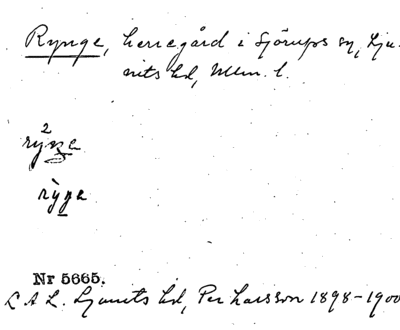 Rynge, herregård i Sjörups sn, Lju-
nits hd, Mlm. l.
2
rỳŋa
Nr 5665.
L A L. Ljunits hd, Per Larsson 1898-1900